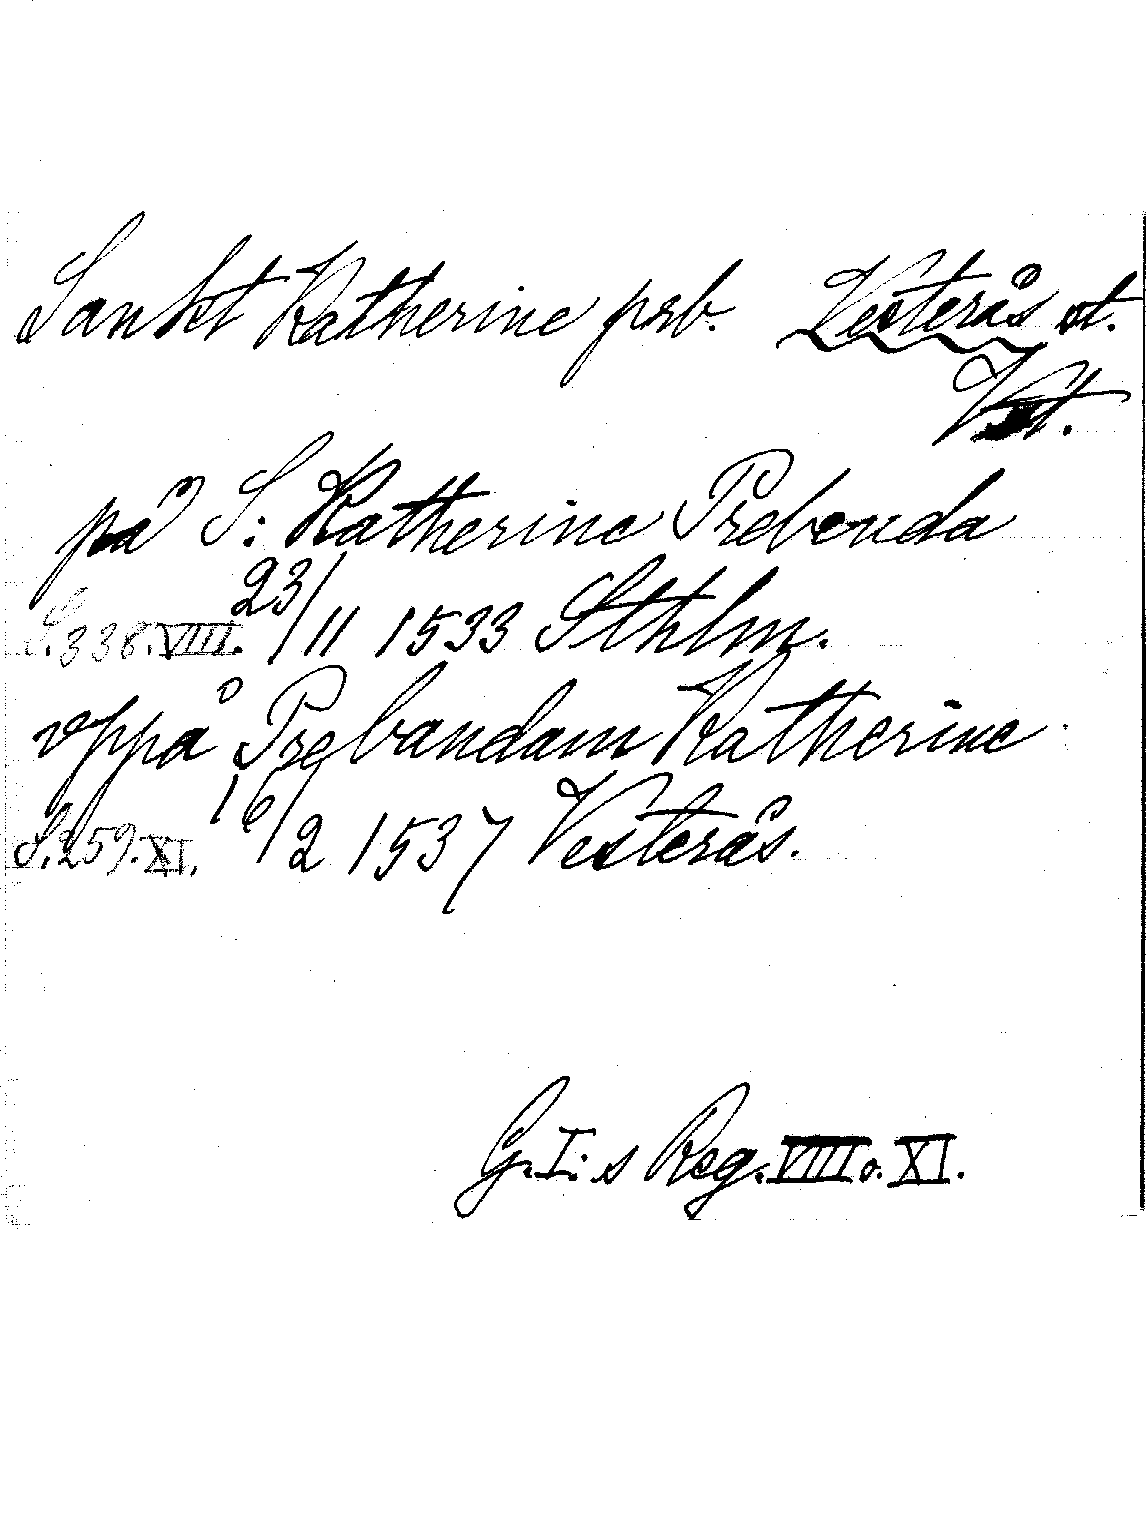 Sankt Katherine prb. Vesterås st.
Vst.
på S: Katherine Prebenda
S. 338. VIII. 23/11 1533 Sthlm.
vppå Prebandam Katherine
S. 259. XI. 16/2 1537 Vesterås.
G. I:s Reg. VIII o. XI.